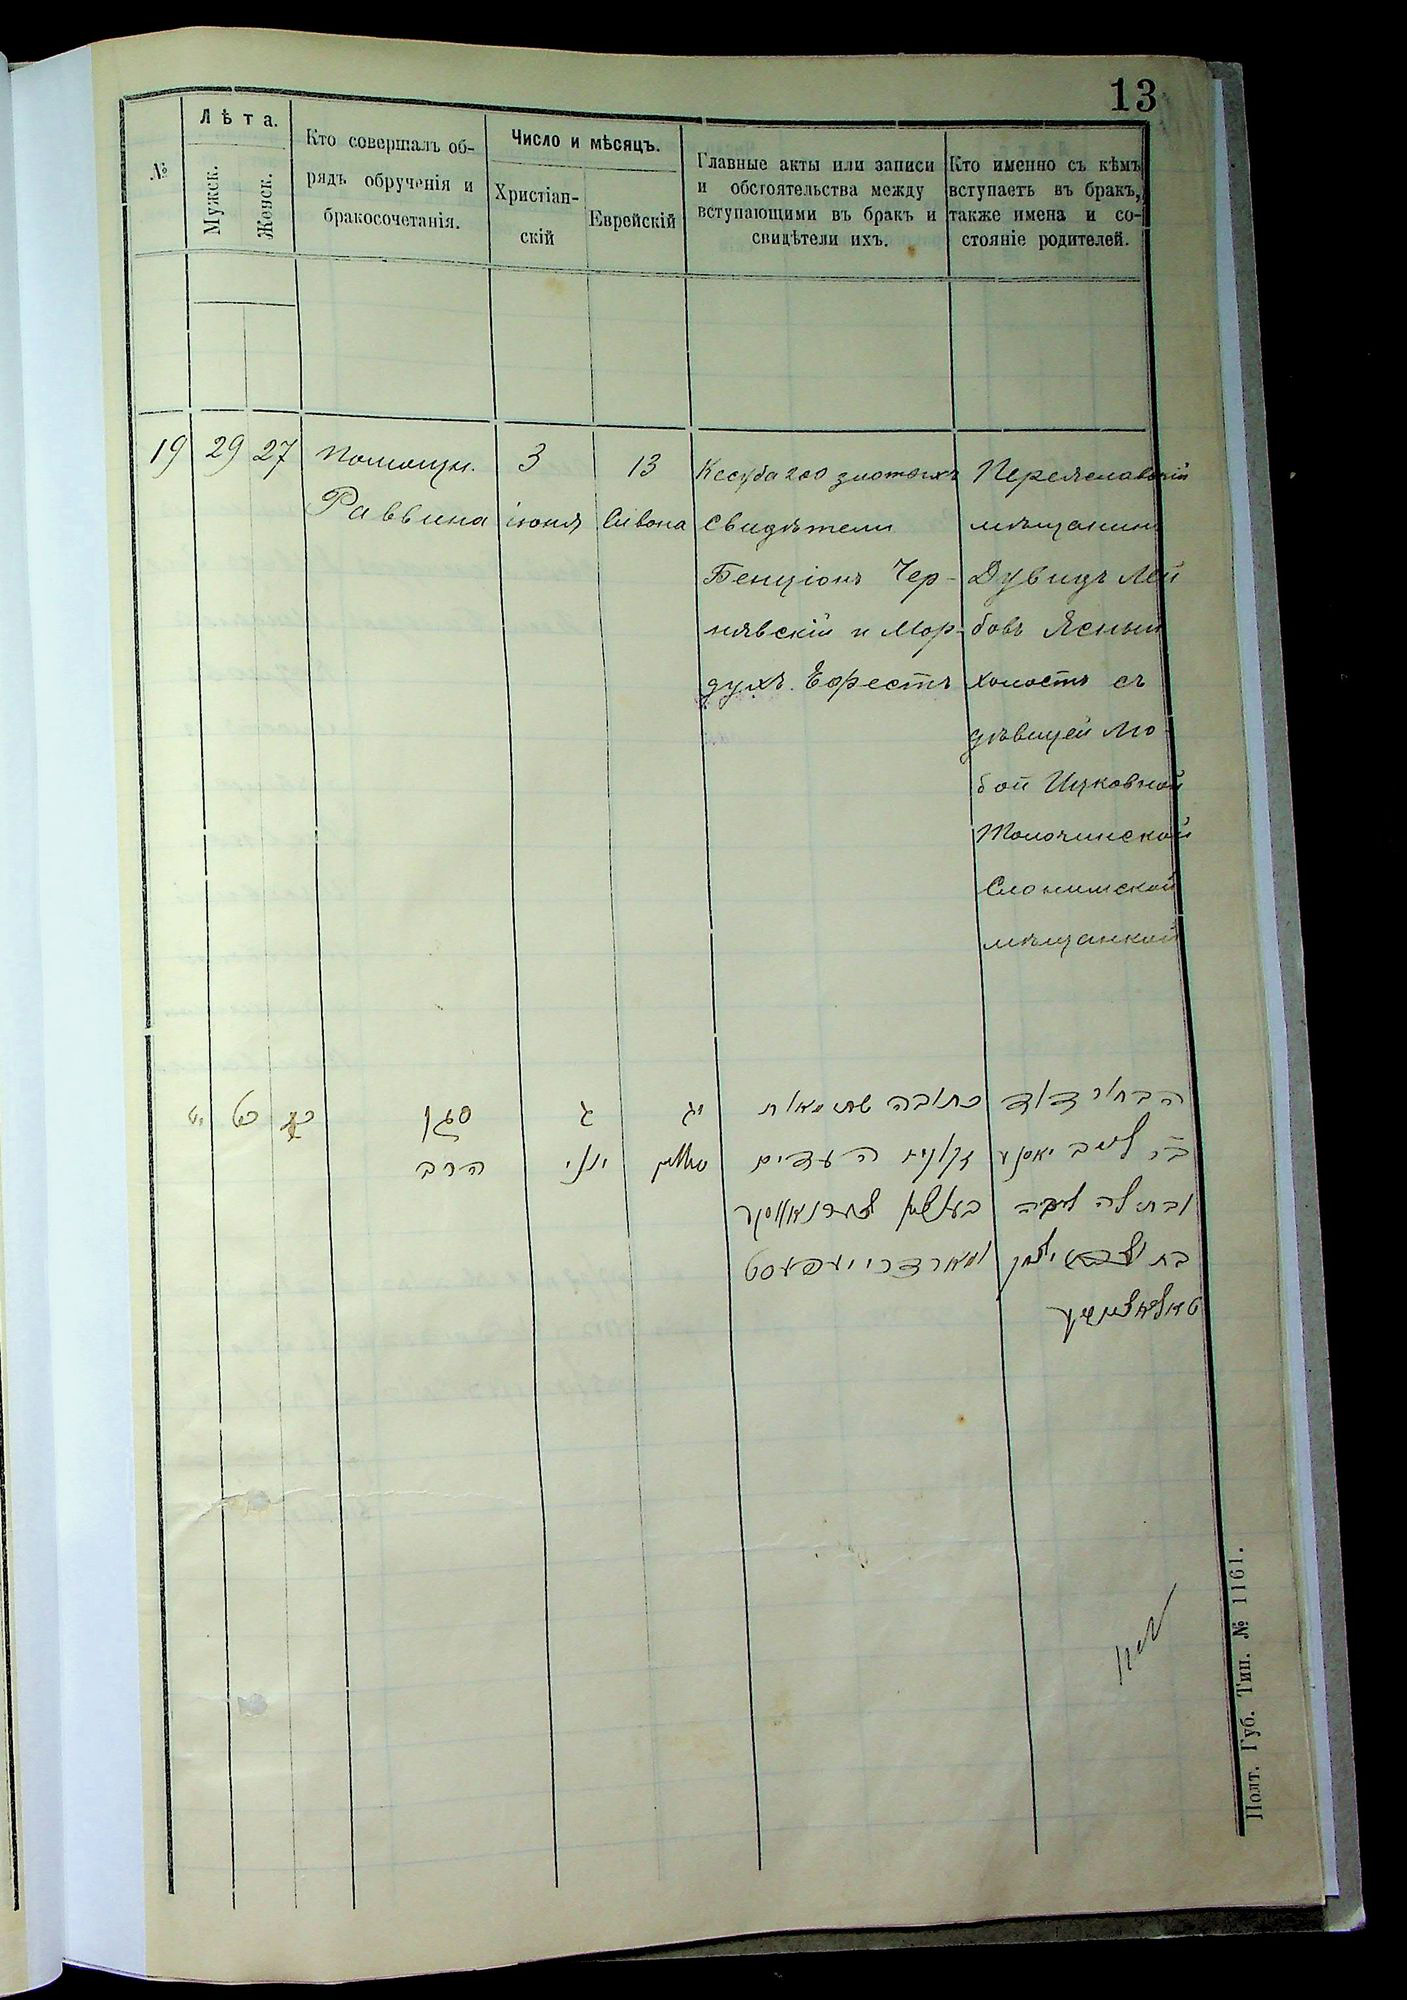 13
№
Лѣта.
Мужск.
Женск.
Кто совершалъ об-
рядъ обрученія и
бракосочетанія.
Число и мѣсяцъ.
Христіан-
скій
Еврейскій
Главные акты или записи
и обстоятельства между
вступающими въ бракъ и
свидѣтели ихъ.
Кто именно съ кѣмъ
вступаетъ въ бракъ,
также имена и со-
стояніе родителей.
19
29
27
Помощн.
Раввина
3
іюня
13
Сивона
Кесуба 200 злотыхъ
Свидѣтели
Бенціонъ Чер-
нявскій и Мор-
духъ Ефестъ
Переяславскій
мѣщанинъ
Дувидъ Лей
бовъ Ясный
холостъ съ
дѣвицей Лю-
бой Ицковной
Толочинской
Слонимской
мѣщанкой
סגן
הרב
ג
יוני
יג
סיון
כתובה שתי מאות
זקוקים העדים
הבחור דוד
ובתולה ליבה
Полт. Губ. Тип. № 1161.